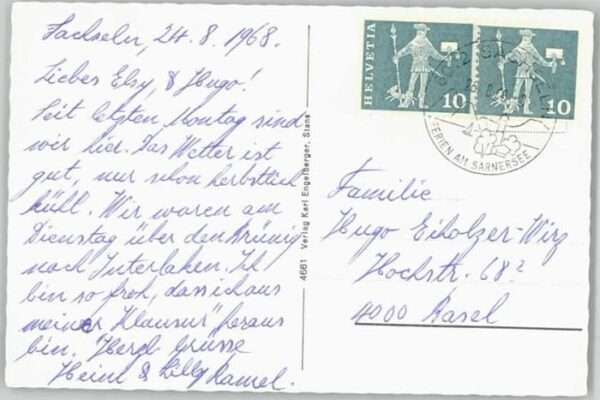 Sachseln, 24.8.1968.
Liebes Elsy & Hugo!
Seit letzten Montag sind
wir hier. Das Wetter ist
gut, nur schon herbstlich
kühl. Wir waren am
Dienstag über den Brünig
nach Interlaken. Ich
bin so froh, dass ich aus
meiner "Klausur" heraus
bin. Herzl Grüsse
Heini & Lilly
4661 Verlag Karl Engelberger, Stans
HELVETIA
10
10
SACHSELN
FERIEN AM SARNERSEE
Familie
Hugo Eiholzer-Wirz
Hochstr. 68
4000 Basel